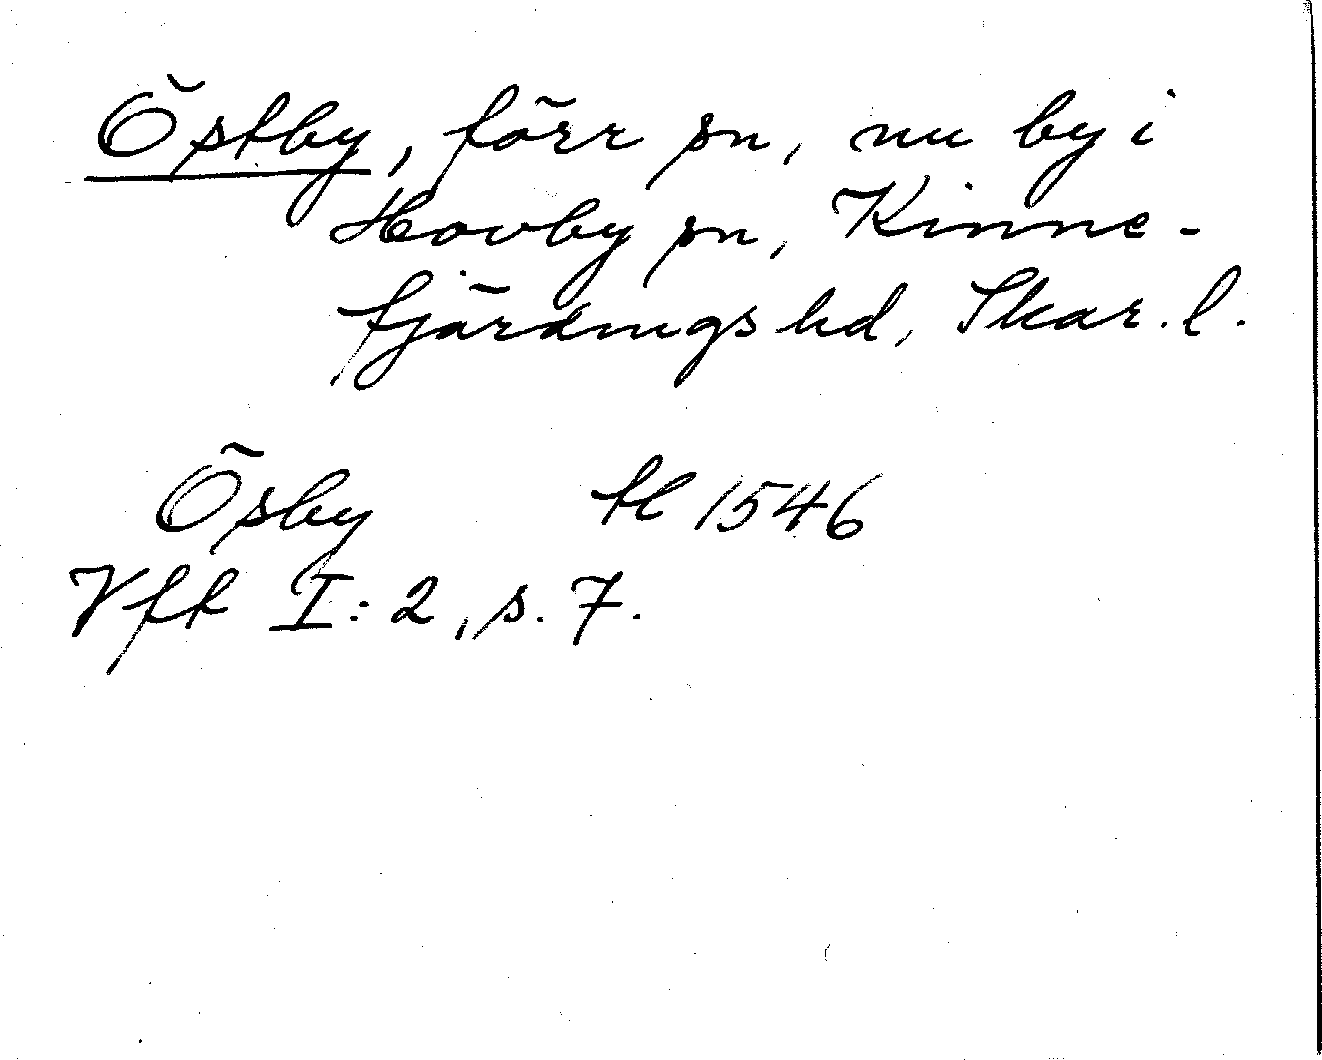 Östby, förr sn, nu by i
Hovby sn, Kinne-
fjärdings hd, Skar. l.
Ösby tl 1546
Vft I:2, s. 7.